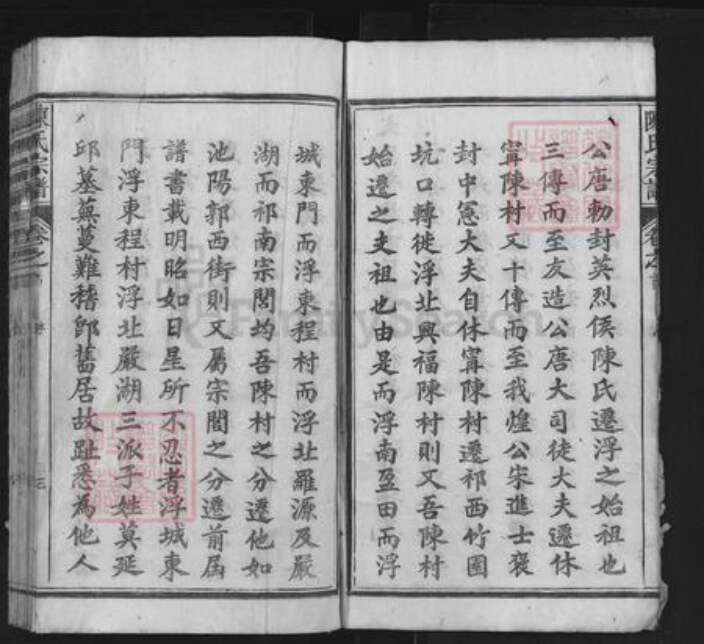 陳氏宗譜
卷之首
公唐勅封英烈侯陳氏遷浮之始祖也
三傳而至友造公唐大司徒大夫遷休
寗陳村又十傳而至我煌公宋進士襃
封中憲大夫自休寗陳村遷祁西竹園
坑口轉徙浮北興福陳村則又吾陳村
始遷之支祖也由是而浮南盈田而浮
城東門而浮東程村而浮北羅源及嚴
湖而祁南宗閭均吾陳村之分遷他如
池陽郭西街則又屬宗閭之分遷前屆
譜書載明昭如日星所不忍者浮城東
門浮東程村浮北嚴湖三派子姓莫延
邱墓蕪蔓難稽卽舊居故趾悉為他人
陳氏宗譜
卷之首
FamilySearch